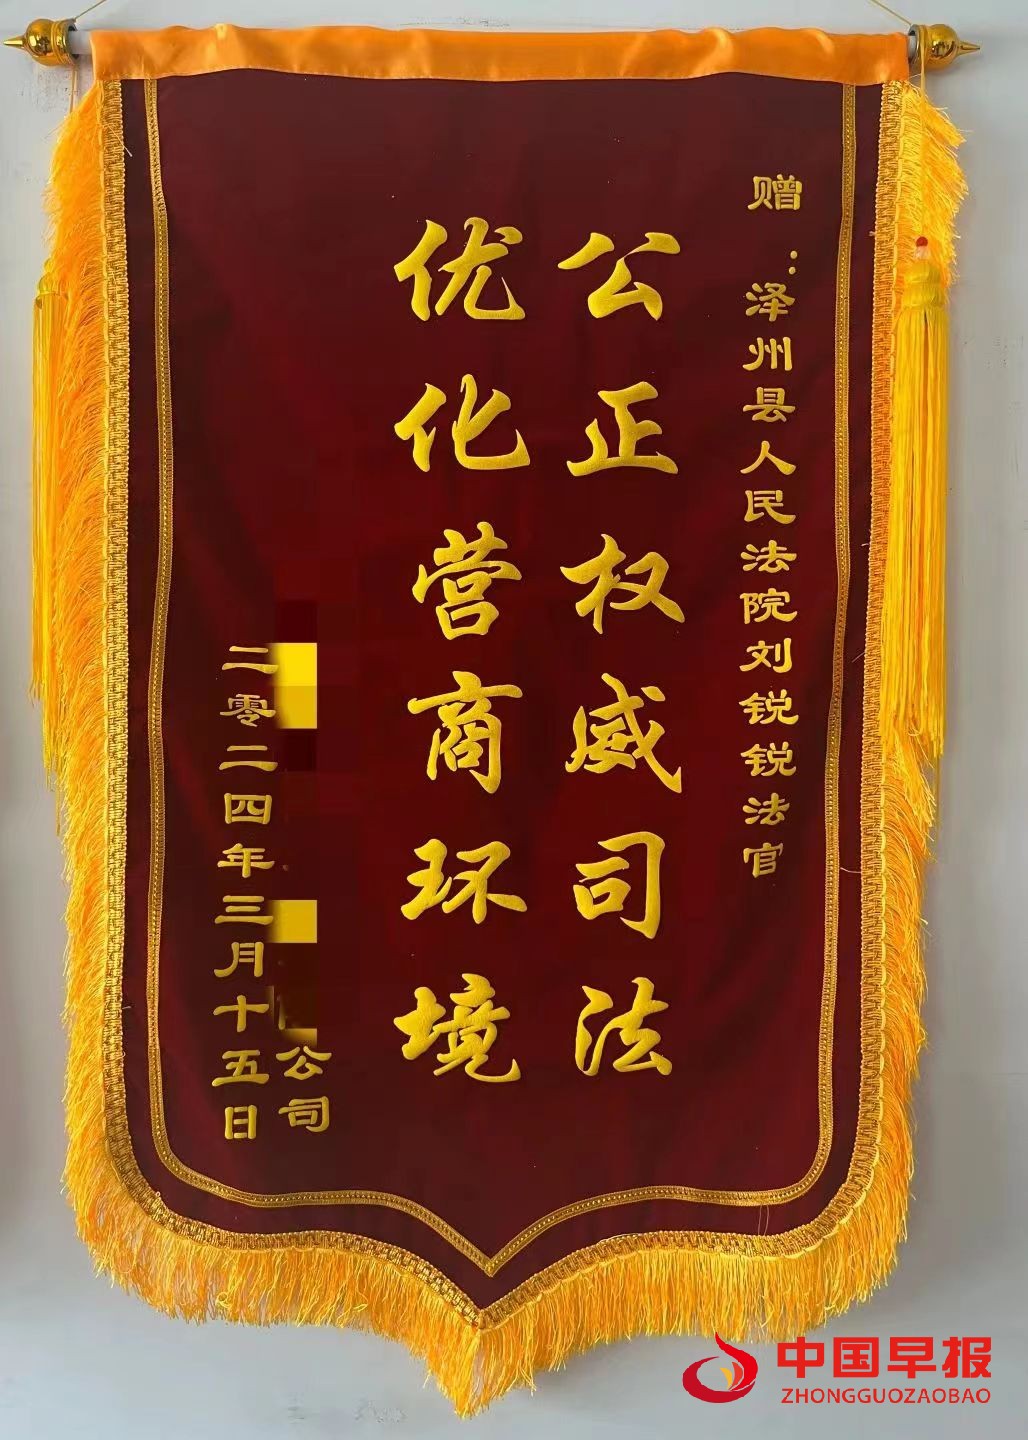 赠：泽州县人民法院刘锐锐法官
公正权威司法
优化营商环境
公司
二零二四年三月十五日
中国早报
ZHONGGUOZAOBAO